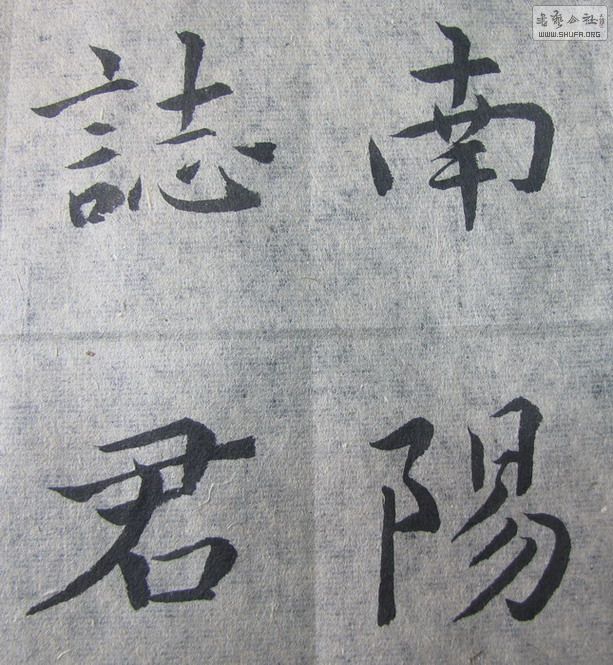 南陽
誌君
书艺公社
WWW.SHUFA.ORG